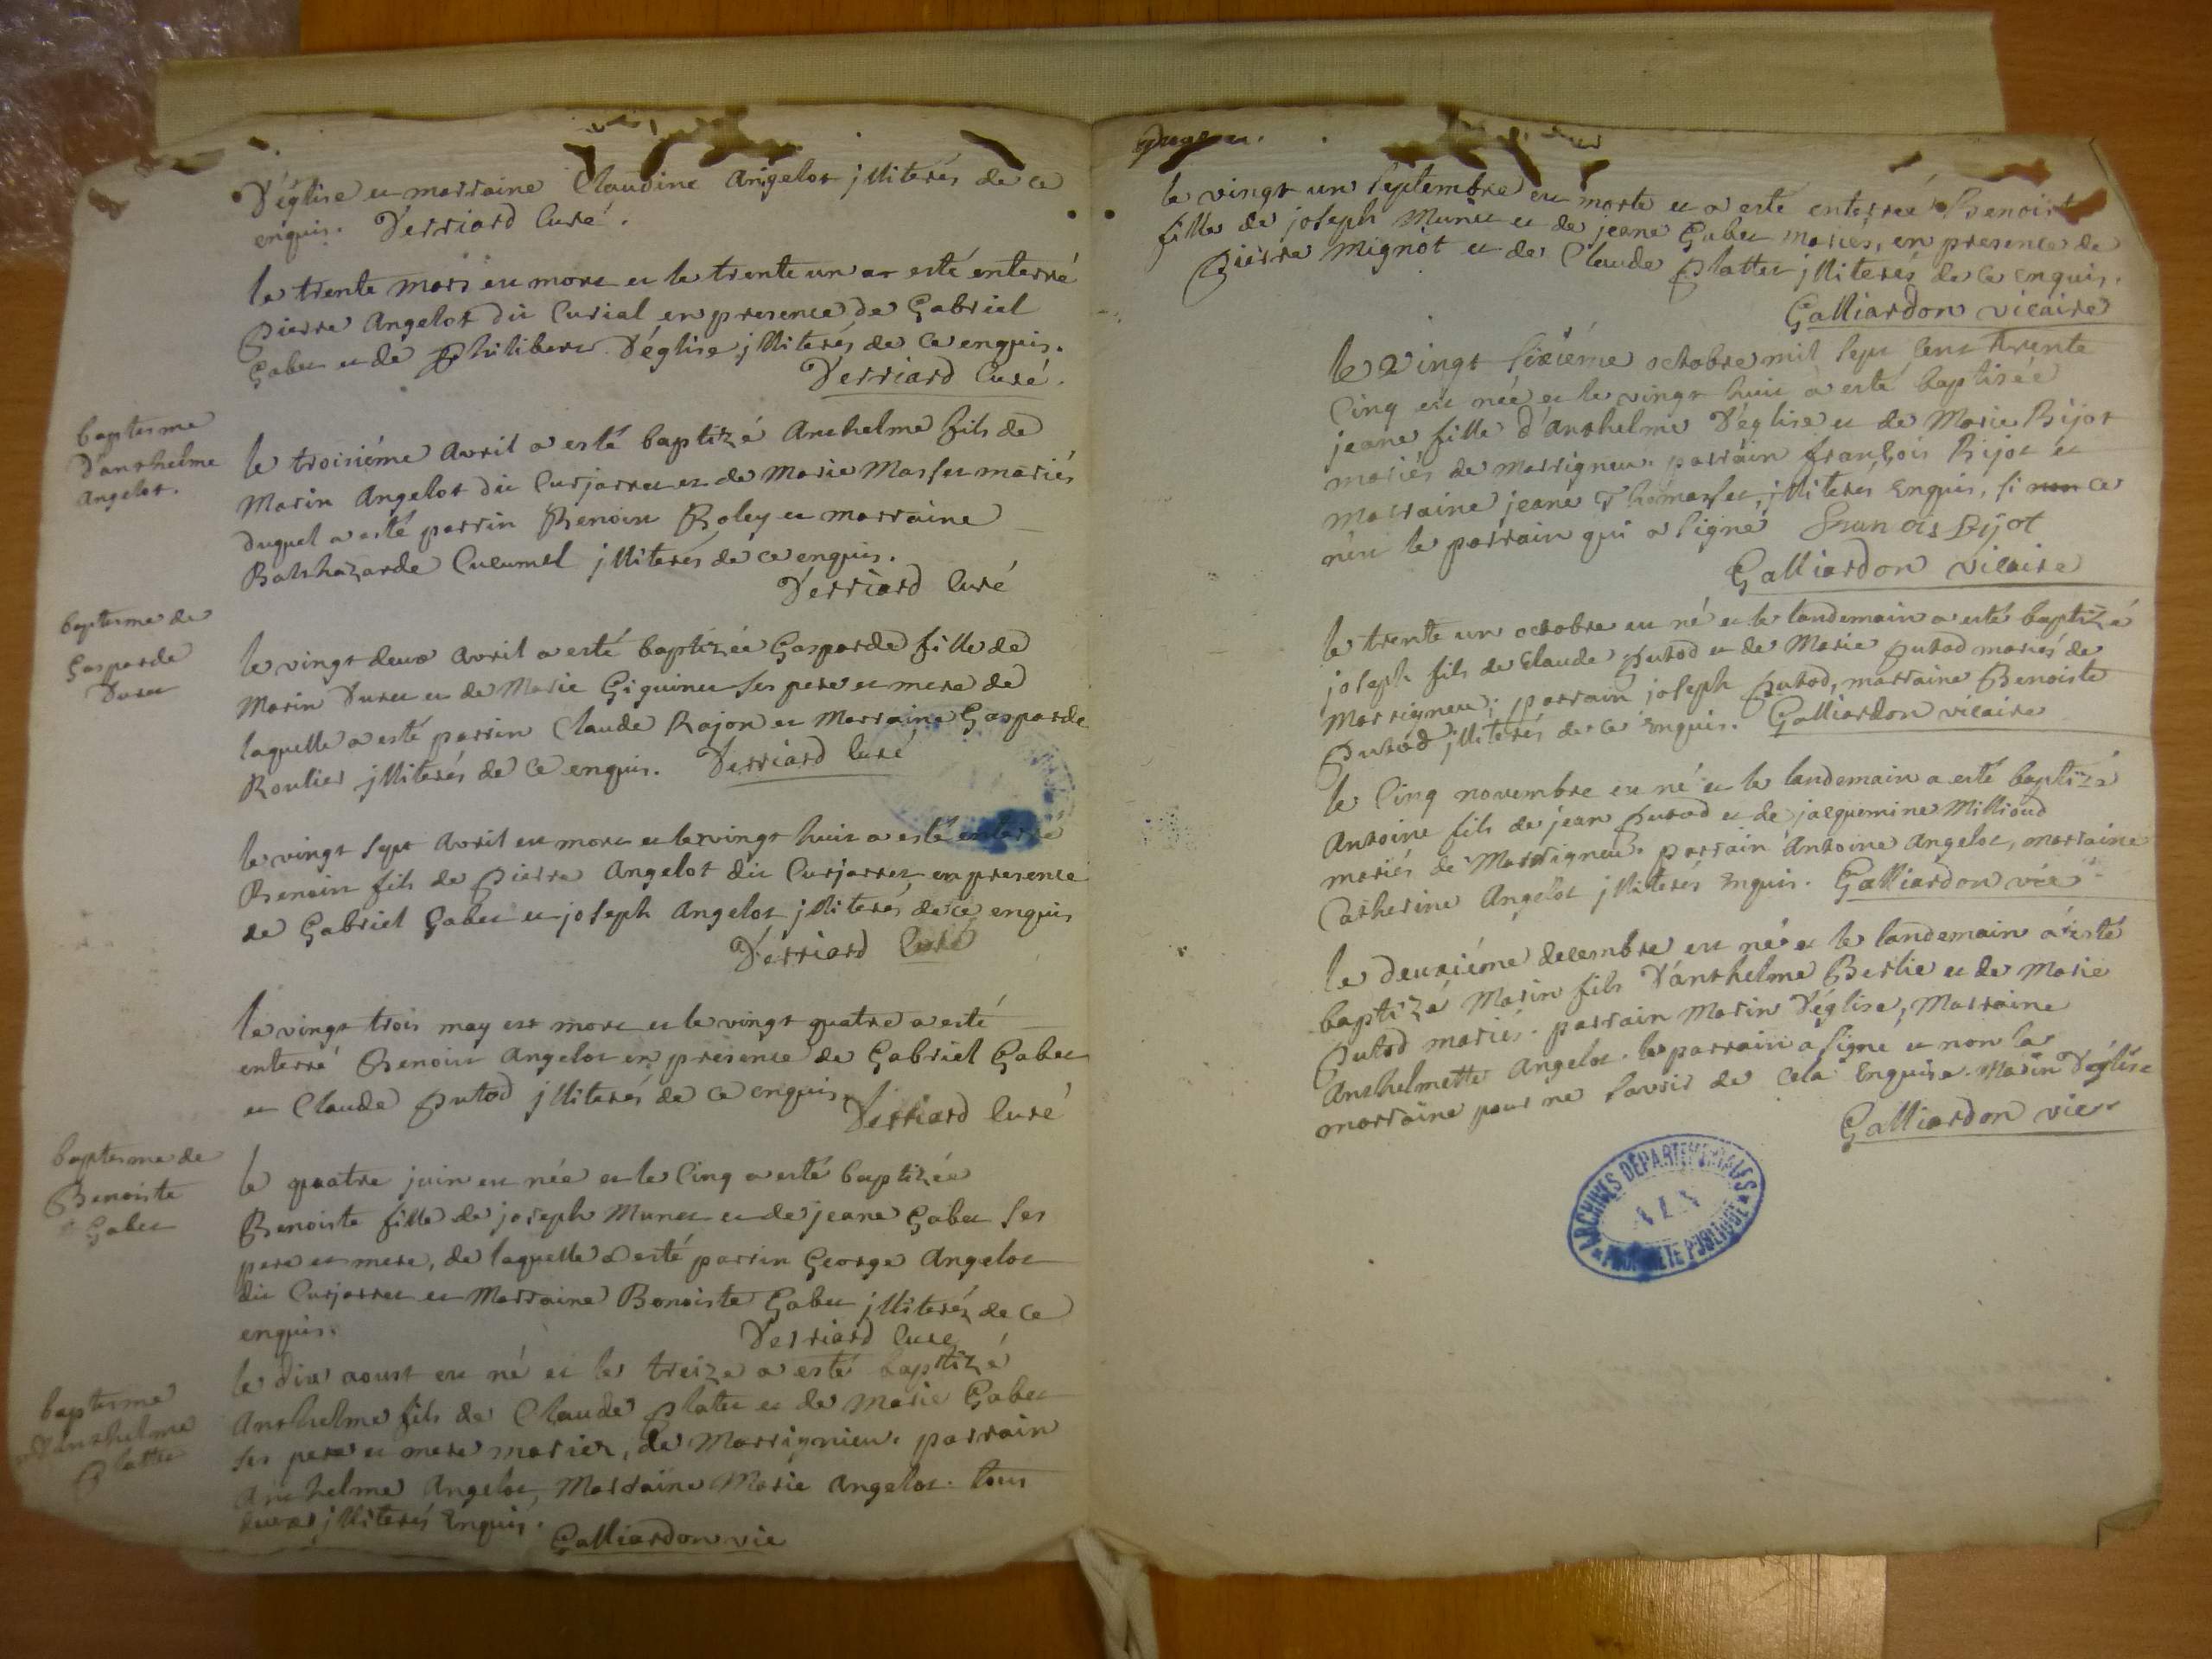 D'église et marraine Claudine Angelot illiterés de ce
enquis. Derriard Curé.
le trente mars est mort et le trente un a esté enterré
Pierre Angelot dit Curial en presence de Gabriel
Gabet et de Philibert D'église illiterés de ce enquis.
Derriard Curé.
baptesme
D'anthelme
Angelot.
le troisiéme Avril a esté baptizé Anthelme fils de
Marin Angelot dit Curjarret et de Marie Masset mariés
duquel a esté parrin Benoist Roley et marraine
Balthazarde Cucumel illiterés de ce enquis.
Derriard Curé
baptesme de
Gasparde
Duret
le vingt deux Avril a esté baptizée Gasparde fille de
Marin Duret et de Marie Giguinet ses pere et mere de
laquelle a esté parrin Claude Rajon et Marraine Gasparde
Roulier illiterés de ce enquis. Derriard Curé
le vingt sept Avril est mort et le vingt huit a esté enterré
Benoist fils de Pierre Angelot dit Curjarret en presence
de Gabriel Gabet et joseph Angelot illiterés de ce enquis
Derriard Curé
le vingt trois may est mort et le vingt quatre a esté
enterré Benoist Angelot en presence de Gabriel Gabet
et Claude Putod illiterés de ce enquis.
Derriard Curé
baptesme de
Benoiste
Gabet
le quatre juin est née et le Cinq a esté baptizée
Benoiste fille de joseph Munet et de jeane Gabet ses
pere et mere, de laquelle a esté parrin George Angelot
dit Curjarret et Marraine Benoiste Gabet illiterés de ce
enquis.
Derriard Curé
baptesme
D'anthelme
Platte
le dix aoust est né et le treize a esté baptizé
Anthelme fils de Claude Platet et de Marie Gabet
ses pere et mere mariez, de Marrignieu. parrain
Anthelme Angelot, Marraine Marie Angelot. tous
deux illiterés Enquis.
Galliardon vic
le vingt un Septembre est morte et a esté enterrée Benoist
fille de joseph Munet et de jeane Gabet mariés, en presence de
Pierre Mignot et de Claude Plattet illiterés de ce enquis.
Galliardon vicaire
le Vingt Sixiéme octobre mil Sept Cent trente
Cinq est née et le vingt huit a esté baptisée
jeane fille d'Anthelme D'église et de Marie Bijot
mariés de Marrigneu. parrain françois Bijot et
Marraine jeane Thomasset, illiteres Enquis, si non ce
n'est le parrain qui a signé Franois Bijot
Galliardon vicaire
le trente un octobre est né et le landemain a esté baptizé
joseph fils de Claude Putod et de Marie Putod mariés de
Marrigneu; parrain joseph Putod, marraine Benoiste
Putod illiterés de ce Enquis. Galliardon vicaire
le Cinq novembre est né et le landemain a esté baptizé
Antoine fils de jéan Putod et de jacquemine Millioud
mariés de Marrigneu. parrain Antoine Angelot, marraine
Catherine Angelot illiterés Enquis. Galliardon vic
le deuxiéme decembre est né et le landemain a esté
baptizé Marin fils D'anthelme Berlie et de Marie
Putod mariés. parrain Marin D'église, Marraine
Anthelmette Angelot. le parrain a signé et non la
marraine pour ne savoir de cela Enquise. Marin D'église
Galliardon vic
ARCHIVES DÉPARTEMENTALES
AIN
PROPRIÉTÉ PUBLIQUE